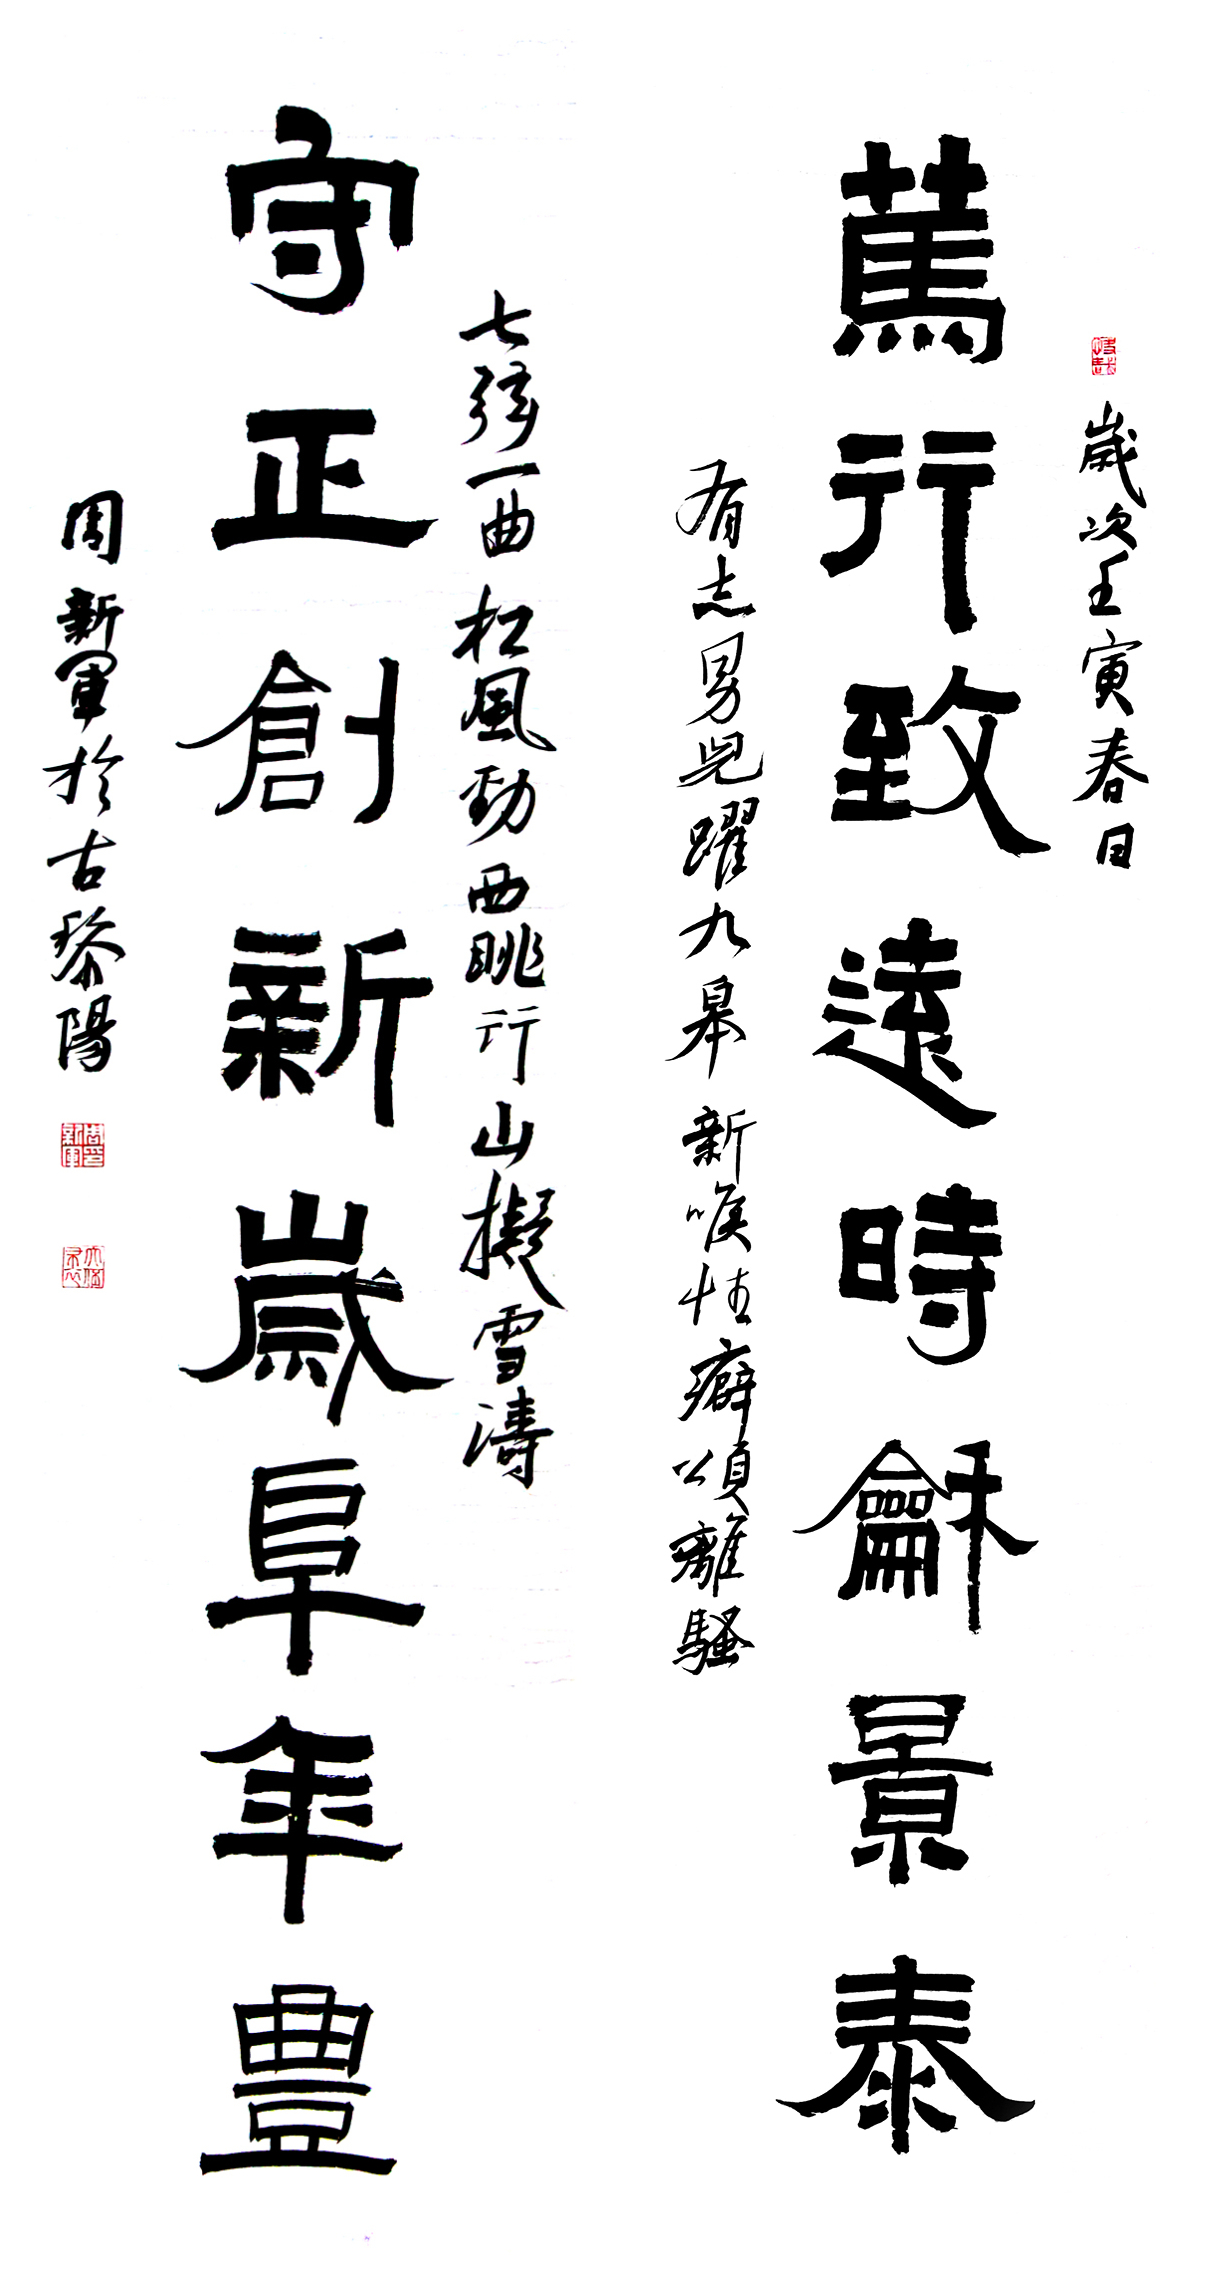 歲次壬寅春日
篤行致遠時龢景泰
有志男兒躍九皋新喉性癖頌離騷
七弦一曲松風勁西眺行山擬雪濤
守正創新歲阜年豊
周新軍於古黎陽
周印新軍